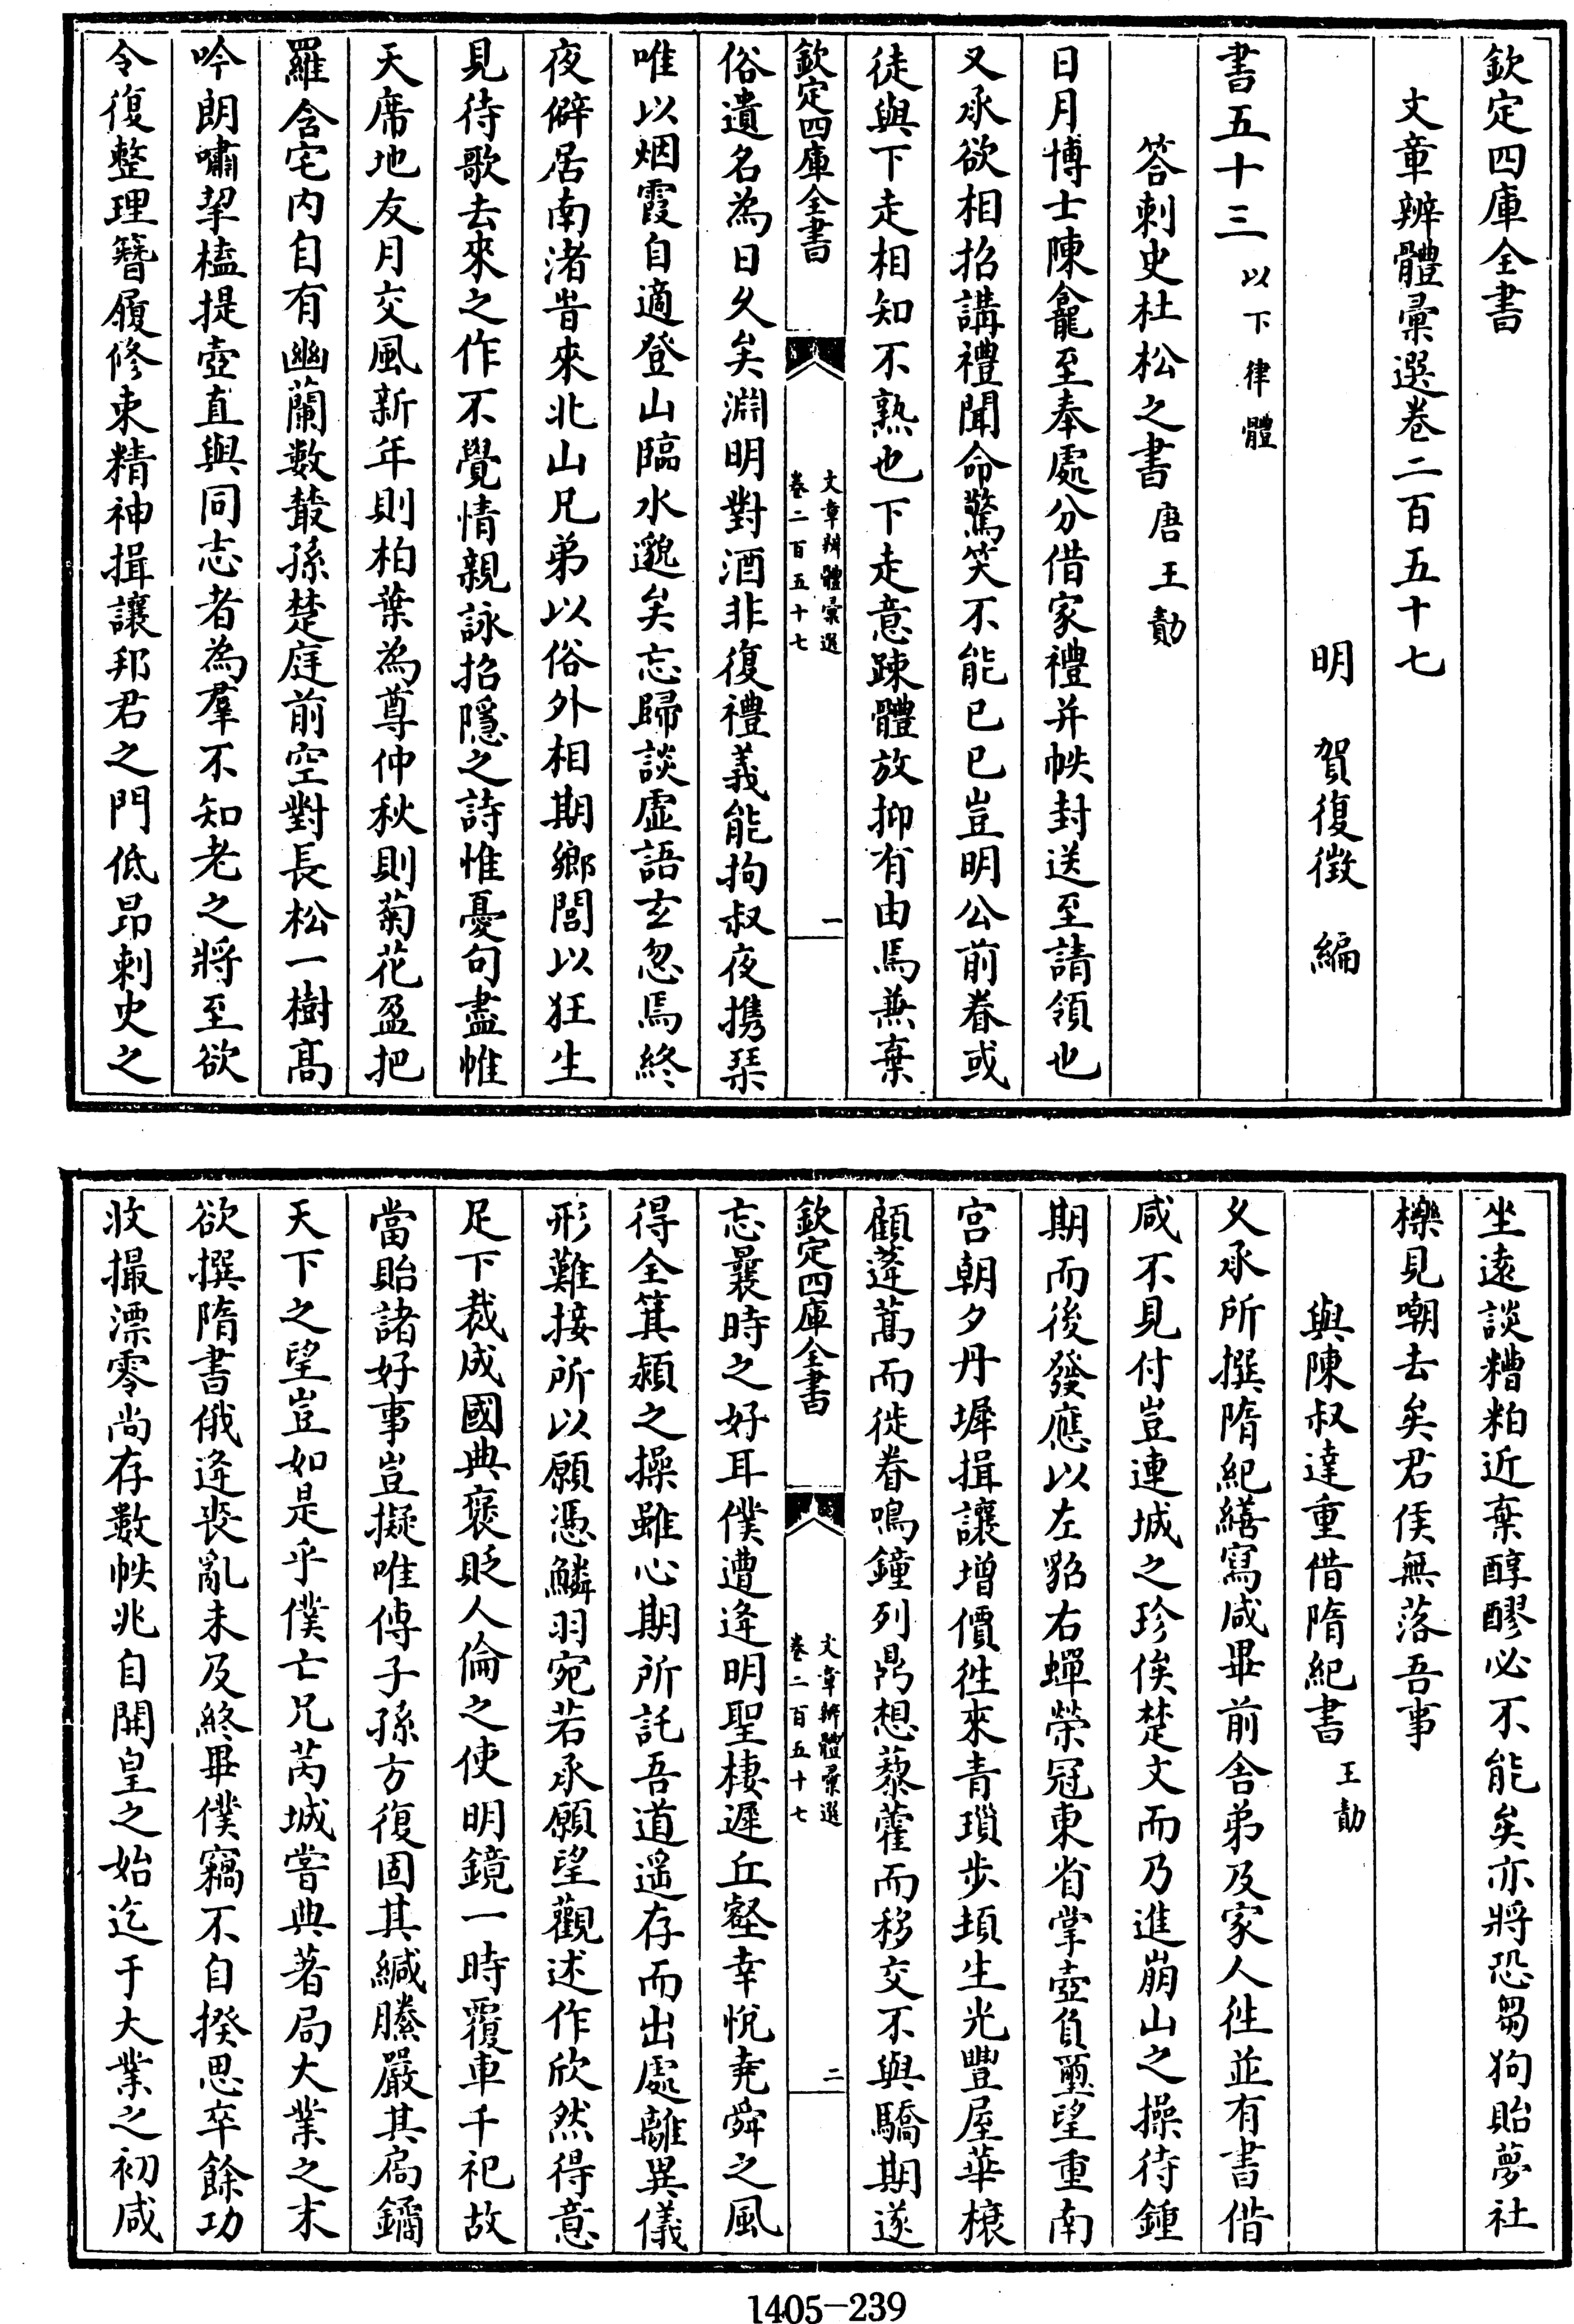 欽定四庫全書
文章辨體彚選卷二百五十七
明 賀復徵 編
書五十三以下律體
答刺史杜松之書唐王勣
日月博士陳龕至奉處分借家禮并帙封送至請領也
又承欲相招講禮聞命驚笑不能已已豈明公前眷或
徒與下走相知不熟也下走意踈體放抑有由焉兼棄
欽定四庫全書
文章辨體彚選
卷二百五十七
一
俗遺名為日久矣淵明對酒非復禮義能拘叔夜攜琹
唯以烟霞自適登山臨水邈矣忘歸談虛語玄忽焉終
夜僻居南渚昔來北山兄弟以俗外相期鄉閭以狂生
見待歌去來之作不覺情親詠招隱之詩惟憂句盡帷
天席地友月交風新年則柏葉為尊仲秋則菊花盈把
羅含宅内自有幽蘭數叢孫楚庭前空對長松一樹高
吟朗嘯挈榼提壺直與同志者為羣不知老之將至欲
令復整理簪履修束精神揖讓邦君之門低昂刺史之
坐遠談糟粕近棄醇醪必不能矣亦將恐芻狗貽夢社
櫟見嘲去矣君侯無落吾事
與陳叔達重借隋紀書王勣
久承所撰隋紀繕寫咸畢前舍弟及家人往並有書借
咸不見付豈連城之珍俟楚文而乃進崩山之操待鍾
期而後發應以左貂右蟬榮冠東省掌壺負璽望重南
宮朝夕丹墀揖讓增價往來青瑣步頊生光豐屋華榱
顧蓬蒿而徙眷鳴鐘列鼎想藜藿而移交不與驕期遂
欽定四庫全書
文章辨體彚選
卷二百五十七
二
忘曩時之好耳僕遭逄明聖棲遲丘壑幸恱堯舜之風
得全箕潁之操雖心期所託吾道遥存而出處離異儀
形難接所以願憑鱗羽宛若承願望觀述作欣然得意
足下裁成國典褒貶人倫之使明鏡一時覆車千祀故
當貽諸好事豈擬唯傳子孫方復固其緘縢嚴其扃鐍
天下之望豈如是乎僕亡兄芮城嘗典著局大業之末
欲撰隋書俄逄喪亂未及終畢僕竊不自揆思卒餘功
收撮漂零尚存數帙兆自開皇之始迄于大業之初咸
1405-239